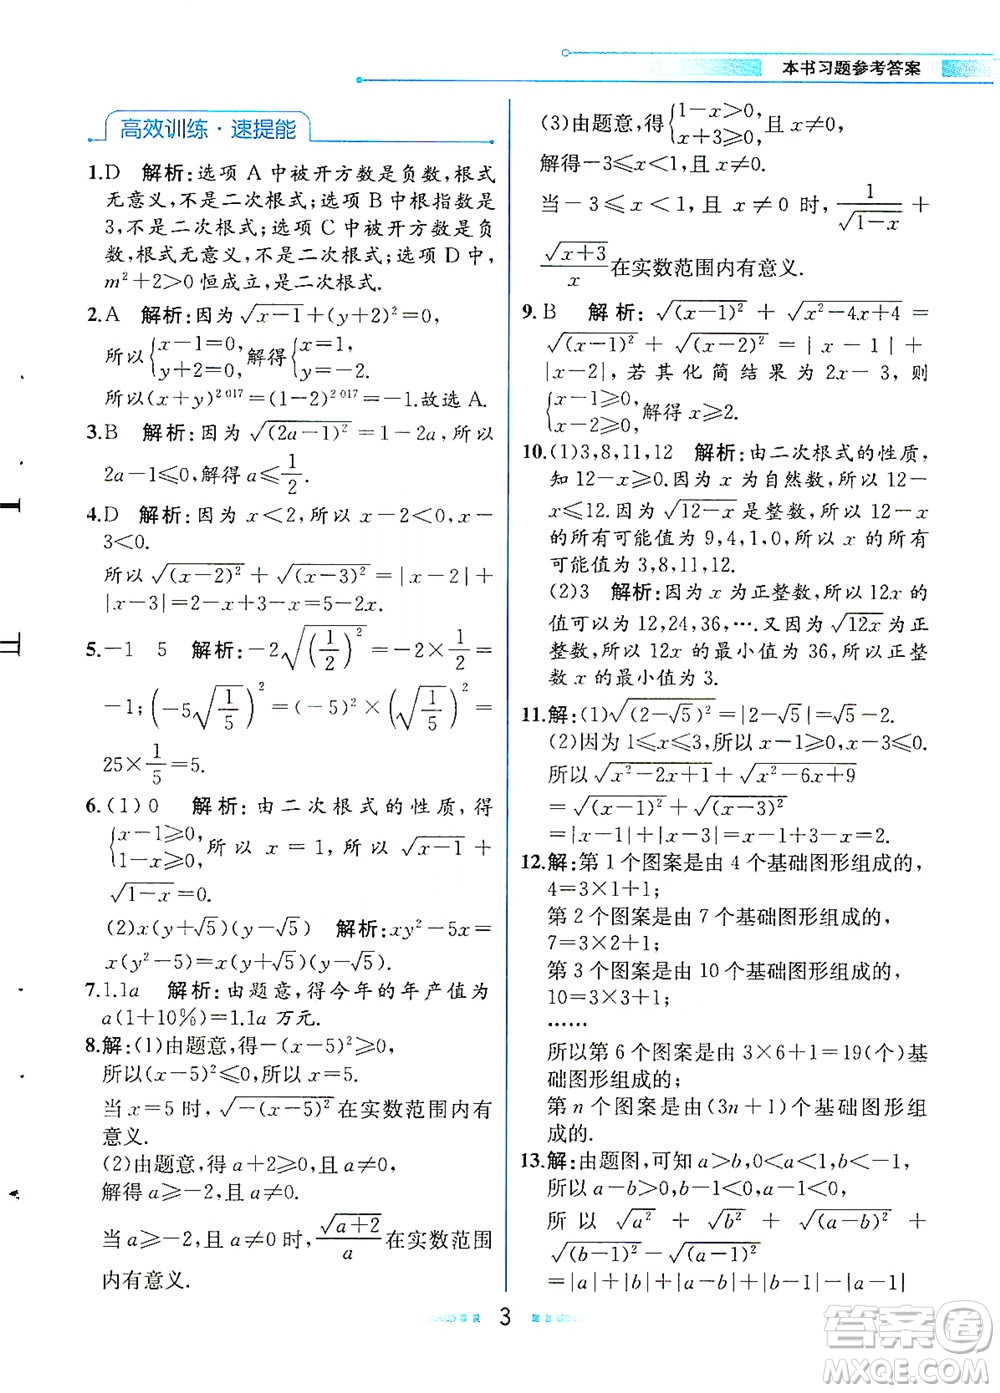 本书习题参考答案
高效训练·速提能
1.D 解析:选项A中被开方数是负数,根式
无意义,不是二次根式;选项B中根指数是
3,不是二次根式;选项C中被开方数是负
数,根式无意义,不是二次根式;选项D中,
m²+2>0恒成立,是二次根式.
2.A 解析:因为√(x-1)+(y+2)²=0,
所以{x-1=0, y+2=0, 解得{x=1, y=-2.
所以(x+y)²⁰¹⁷=(1-2)²⁰¹⁷=-1.故选A.
3.B 解析:因为√((2a-1)²)=1-2a,所以
2a-1≤0,解得a≤1/2.
4.D 解析:因为x<2,所以x-2<0,x-
3<0.
所以√((x-2)²)+√((x-3)²)=|x-2|+
|x-3|=2-x+(3-x)=5-2x.
5.-1 5 解析:-2√((1/2)²)=-2×1/2=
-1;(-5√(1/5))²=(-5)²×(√(1/5))²=
25×1/5=5.
6.(1)0 解析:由二次根式的性质,得
{x-1≥0, 1-x≥0, 所以x=1,所以√(x-1)+
√(1-x)=0.
(2)x(y+√5)(y-√5) 解析:xy²-5x=
x(y²-5)=x(y+√5)(y-√5).
7.1.1a 解析:由题意,得今年的年产值为
a(1+10%)=1.1a万元.
8.解:(1)由题意,得-(x-5)²≥0,
所以(x-5)²≤0,所以x=5.
当x=5时,√(-(x-5)²)在实数范围内有
意义.
(2)由题意,得a+2≥0,且a≠0,
解得a≥-2,且a≠0.
当a≥-2,且a≠0时,√(a+2)/a在实数范围
内有意义.
(3)由题意,得{1-x>0, x+3≥0,
解得-3≤x<1.
当-3≤x<1,且x≠0时,1/√(1-x)+
√(x+3)/x在实数范围内有意义.
9.B 解析:√((x-1)²)+√(x²-4x+4)=
√((x-1)²)+√((x-2)²)=|x-1|+
|x-2|,若其化简结果为2x-3,则
{x-1≥0, x-2≥0, 解得x≥2.
10.(1)3,8,11,12 解析:由二次根式的性质,
知12-x≥0.因为x为自然数,所以12-x
≤12.因为√(12-x)是整数,所以12-x
的所有可能值为9,4,1,0,所以x的所有
可能值为3,8,11,12.
(2)3 解析:因为x为正整数,所以12x的
值可以为12,24,36,….又因为√(12x)为正
整数,所以12x的最小值为36,所以正整
数x的最小值为3.
11.解:(1)√((2-√5)²)=|2-√5|=√5-2.
(2)因为1≤x≤3,所以x-1≥0,x-3≤0.
所以√(x²-2x+1)+√(x²-6x+9)
=√((x-1)²)+√((x-3)²)
=|x-1|+|x-3|=x-1+3-x=2.
12.解:第1个图案是由4个基础图形组成的,
4=3×1+1;
第2个图案是由7个基础图形组成的,
7=3×2+1;
第3个图案是由10个基础图形组成的,
10=3×3+1;
……
所以第6个图案是由3×6+1=19(个)基
础图形组成的;
第n个图案是由(3n+1)个基础图形组
成的.
13.解:由题图,可知a>b,0<a<1,b<-1,
所以a-b>0,b-1<0,a-1<0,
所以√(a²)+√(b²)+√((a-b)²)+
√((b-1)²)-√((a-1)²)
=|a|+|b|+|a-b|+|b-1|-|a-1|
3
答案圈
MXQE.COM